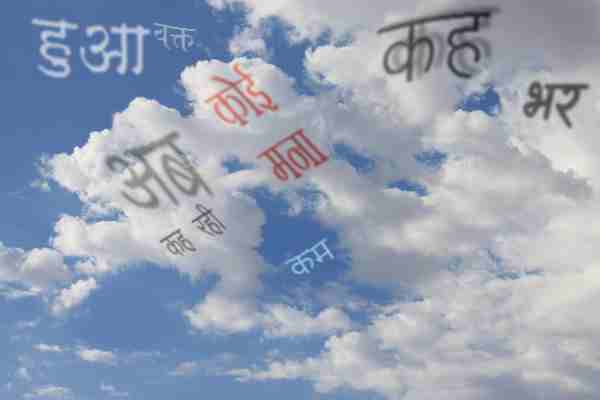 हुआ
वक्त
कह
कोई
भर
अब
मना
कह रही
कम